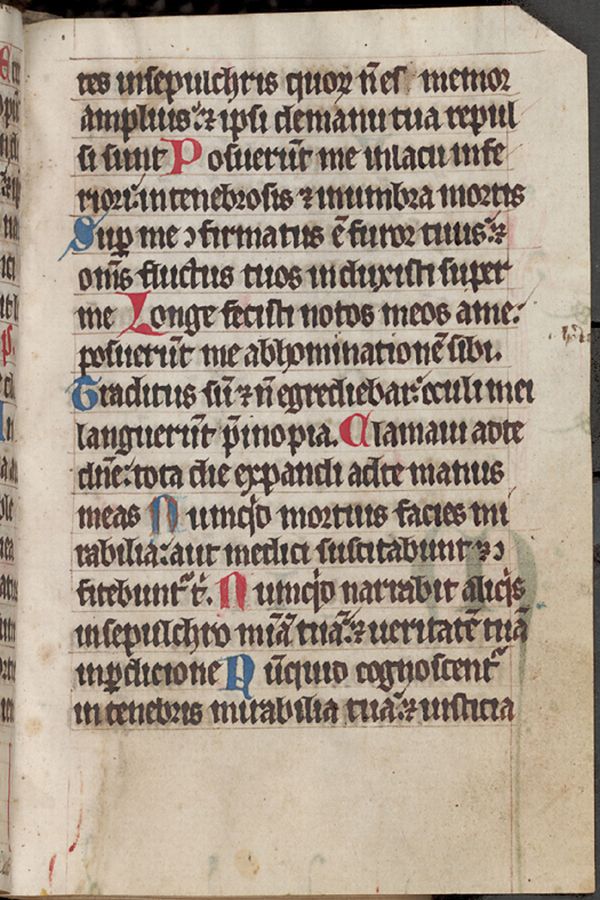 tes insepulchris quoꝝ ñ es memor
amplius: ⁊ ipsi demanu tua repul
si sunt Posuerūt me inlacu infe
riori: intenebrosis ⁊ inumbra mortis
Suꝑ me ꝯfirmatus ē furor tuus: ⁊
om̄s fluctus tuos induxisti super
me Longe fecisti notos meos ame:
posuerūt me abhominationē sibi.
Traditus sū ⁊ ñ egrediebar: oculi mei
languerūt p̄ inopia. Clamaui adte
dn̄e: tota die expandi adte manus
meas Numqͥd mortuis facies mi
rabilia: aut medici suscitabunt ⁊ ꝯ
fitebunt᷑ t̄. Numqͥd narrabit aliqͥs
insepulchro miāꝫ tuā: ⁊ ueritatē tuā
inꝑdicione Nūquid cognoscent᷑
in tenebris mirabilia tua: ⁊ iusticia